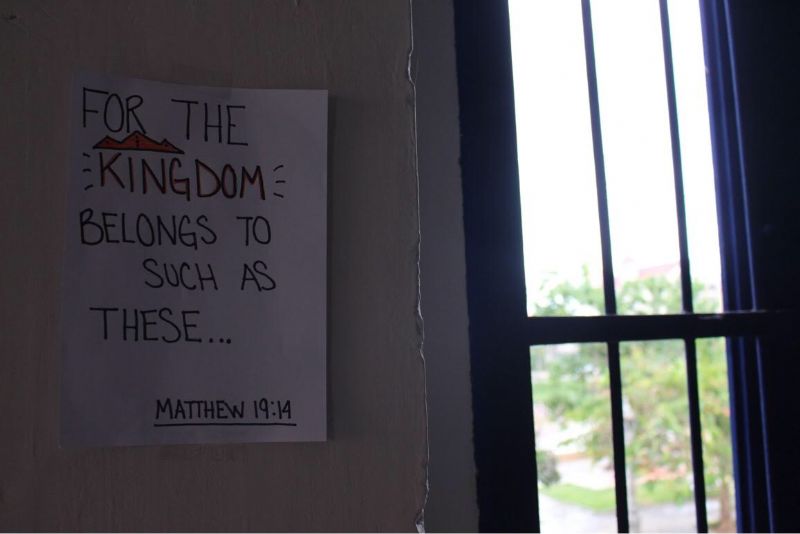 FOR THE
KINGDOM
BELONGS TO
SUCH AS
THESE...
MATTHEW 19:14